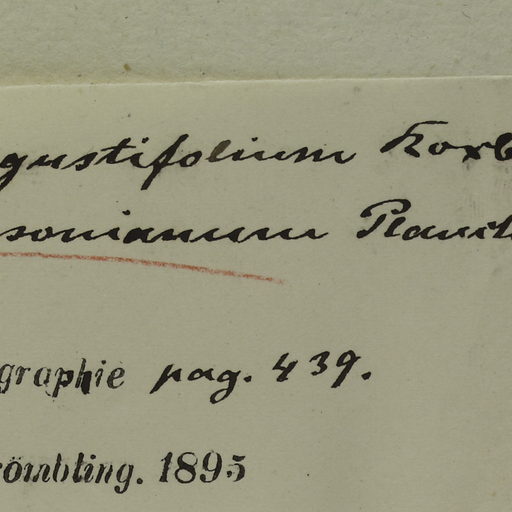 gustifolium Roxb
sonianum Planch
graphie pag. 439.
römbling. 1895